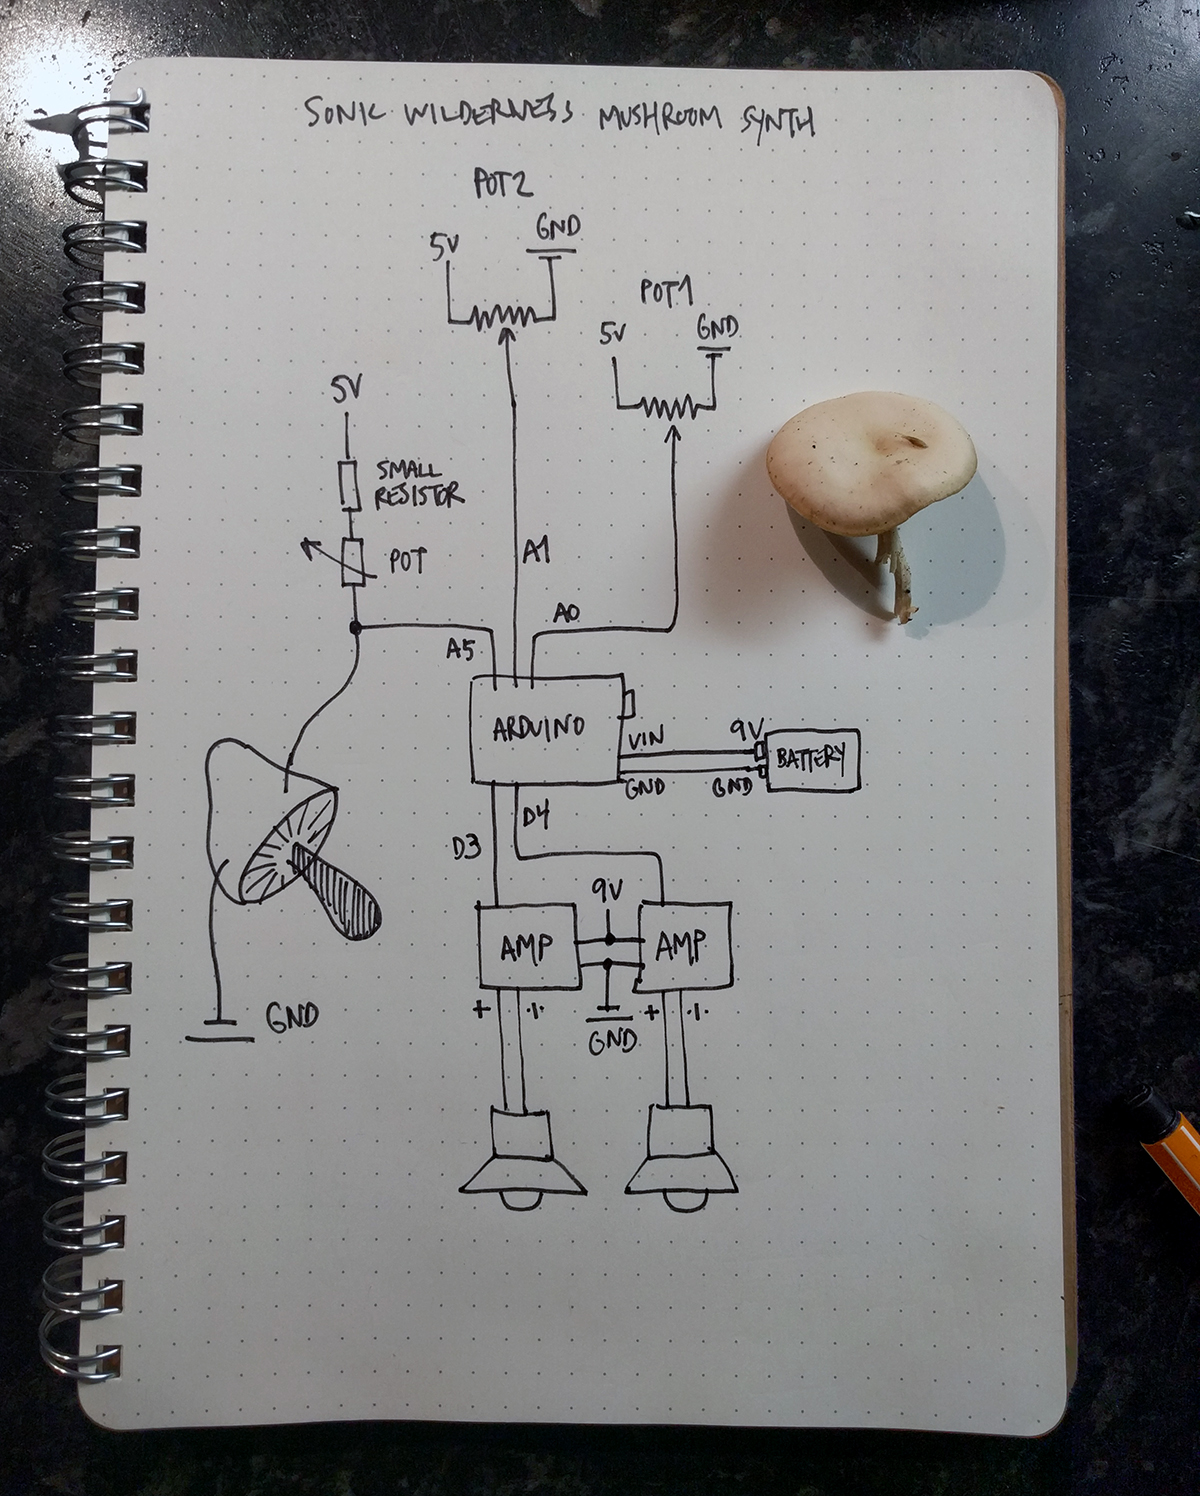 SONIC WILDERNESS MUSHROOM SYNTH
POT2
5V
GND
POT1
5V
GND
5V
SMALL
RESISTOR
POT
A1
A0
A5
ARDUINO
VIN
9V
BATTERY
GND
GND
D4
D3
9V
AMP
AMP
+
-
GND
+
-
GND